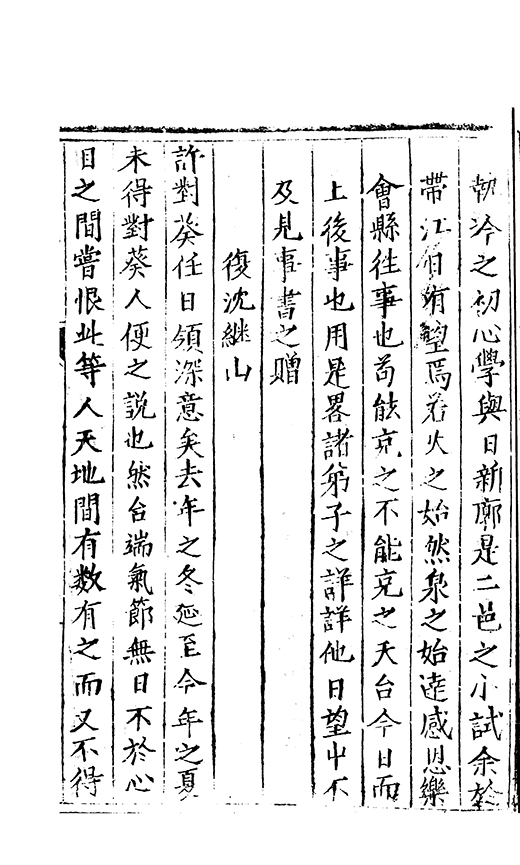 執泠之初心學與日新廓是二邑之小試余於
帶江日有望焉若火之始然泉之始達感恩樂
會縣往事也苟能充之不能充之天台今日而
上後事也用是畧諸弟子之詳詳他日望中不
及見事書之贈
復沈継山
許對葵任日領深意矣去年之冬延至今年之夏
未得對葵人便之說也然台端氣節無日不於心
目之間嘗恨此等人天地間有数有之而又不得